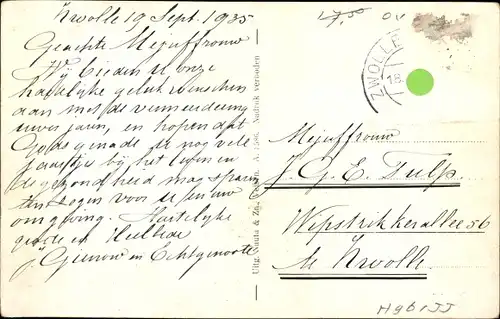 Zwolle 19 Sept. 1935
Geachte Mejuffrouw
Wij bieden U onze
hartelijke geluk wenschen
aan met de vermeerdering
uwer jaren, en hopen dat
Gods genade je nog vele
jaartjes bij het leven en
de gezondheid mag sparen
ten zegen voor U en uw
omgeving. Hartelijke
groete en Heilbede
en Echtgenoote
Uitg. & Zn., A. 1586. Nadruk verboden
ZWOLLE
18
Mejuffrouw
J. G. E. Tulp.
Wipstrikkerallee 56
te Zwolle